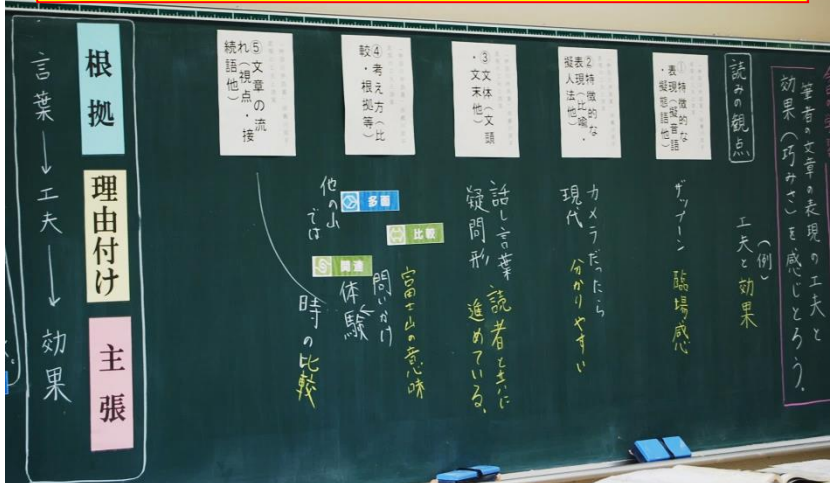 筆者の文章の表現の工夫と
効果(巧みさ)を感じとろう。
読みの観点
(例)
工夫と効果
①特徴的な
表現(擬音語
・擬態語他)
ザッブーン 臨場感
②特徴的な
表現(比喩・
擬人法他)
カメラだったら
現代 分かりやすい
③文体(文頭
・文末他)
話し言葉
疑問形
読者と共に
進めている。
④考え方(比
較・根拠等)
多面
比較
関連
富士山の意味
問いかけ
体験
他の山
では
時の比較
⑤文章の流
れ(視点・接
続語他)
根拠
理由付け
主張
言葉→工夫→効果